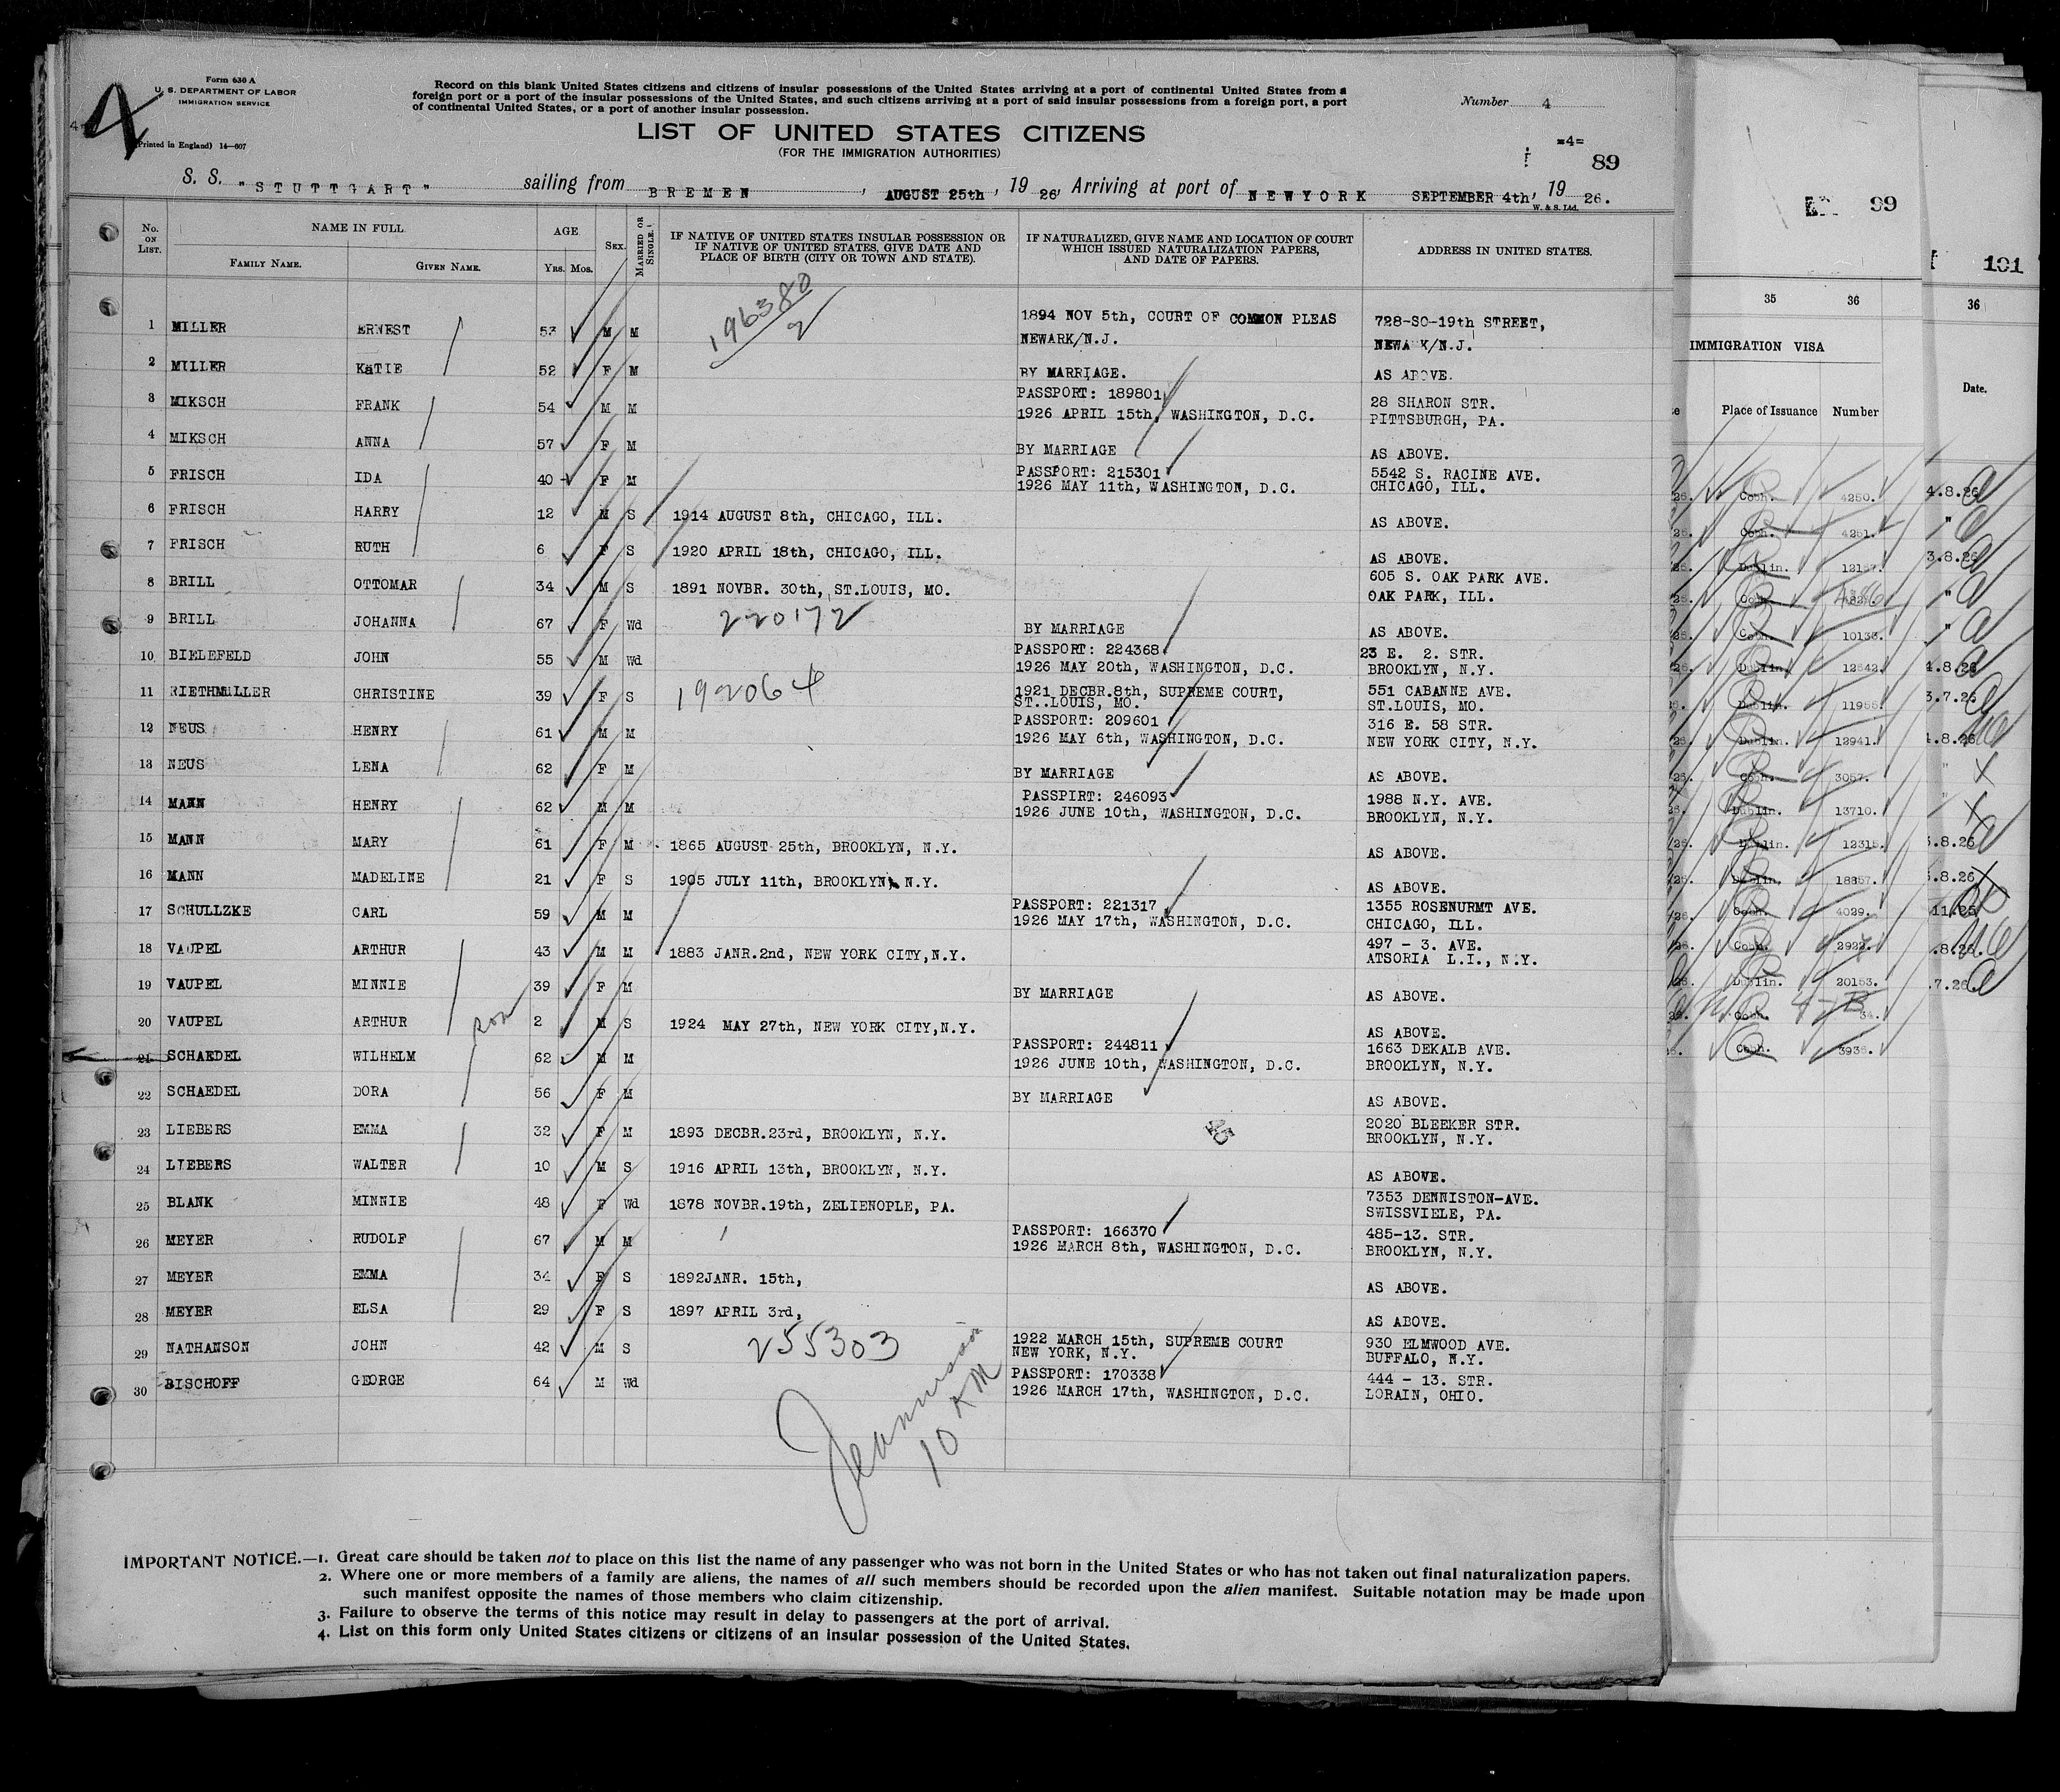 Form 630 A
U. S. DEPARTMENT OF LABOR
IMMIGRATION SERVICE
4
(Printed in England) 14—607
Record on this blank United States citizens and citizens of insular possessions of the United States arriving at a port of continental United States from a
foreign port or a port of the insular possessions of the United States, and such citizens arriving at a port of said insular possessions from a foreign port, a port
of continental United States, or a port of another insular possession.
Number 4
LIST OF UNITED STATES CITIZENS
(FOR THE IMMIGRATION AUTHORITIES)
=4=
89
S. S. "STUTTGART" sailing from BREMEN, AUGUST 25th, 1926, Arriving at port of NEWYORK SEPTEMBER 4th, 1926.
W. & S. Ltd.
No. ON LIST. NAME IN FULL AGE Sex. MARRIED OR SINGLE. IF NATIVE OF UNITED STATES INSULAR POSSESSION OR IF NATIVE OF UNITED STATES, GIVE DATE AND PLACE OF BIRTH (CITY OR TOWN AND STATE). IF NATURALIZED, GIVE NAME AND LOCATION OF COURT WHICH ISSUED NATURALIZATION PAPERS, AND DATE OF PAPERS. ADDRESS IN UNITED STATES.
FAMILY NAME. GIVEN NAME. Yrs. Mos.
196380
2
1 MILLER ERNEST 53 M M 1894 NOV 5th, COURT OF COMMON PLEAS NEWARK/N.J. 728-SO-19th STREET, NEWA K/N.J.
2 MILLER KaTIE 52 F M BY MARRIAGE. AS ABOVE.
3 MIKSCH FRANK 54 M M PASSPORT: 189801 1926 APRIL 15th, WASHINGTON, D.C. 28 SHARON STR. PITTSBURGH, PA.
4 MIKSCH ANNA 57 F M BY MARRIAGE AS ABOVE.
5 FRISCH IDA 40 F M PASSPORT: 215301 1926 MAY 11th, WASHINGTON, D.C. 5542 S. RACINE AVE. CHICAGO, ILL.
6 FRISCH HARRY 12 M S 1914 AUGUST 8th, CHICAGO, ILL. AS ABOVE.
7 FRISCH RUTH 6 F S 1920 APRIL 18th, CHICAGO, ILL. AS ABOVE.
8 BRILL OTTOMAR 34 M S 1891 NOVBR. 30th, ST.LOUIS, MO. 605 S. OAK PARK AVE. OAK PARK, ILL.
220172
9 BRILL JOHANNA 67 F Wd BY MARRIAGE AS ABOVE.
10 BIELEFELD JOHN 55 M Wd PASSPORT: 224368 1926 MAY 20th, WASHINGTON, D.C. 23 E. 2. STR. BROOKLYN, N.Y.
11 RIETHMuLLER CHRISTINE 39 F S 192064 1921 DECBR.8th, SUPREME COURT, ST..LOUIS, MO. 551 CABANNE AVE. ST.LOUIS, MO.
12 NEUS HENRY 61 M M PASSPORT: 209601 1926 MAY 6th, WASHINGTON, D.C. 316 E. 58 STR. NEW YORK CITY, N.Y.
13 NEUS LENA 62 F M BY MARRIAGE AS ABOVE.
14 MANN HENRY 62 M M PASSPIRT: 246093 1926 JUNE 10th, WASHINGTON, D.C. 1988 N.Y. AVE. BROOKLYN, N.Y.
15 MANN MARY 61 F M 1865 AUGUST 25th, BROOKLYN, N.Y. AS ABOVE.
16 MANN MADELINE 21 F S 1905 JULY 11th, BROOKLYN, N.Y. AS ABOVE.
17 SCHULLZKE CARL 59 M M PASSPORT: 221317 1926 MAY 17th, WASHINGTON, D.C. 1355 ROSENURMT AVE. CHICAGO, ILL.
18 VAUPEL ARTHUR 43 M M 1883 JANR.2nd, NEW YORK CITY,N.Y. 497 - 3. AVE. ATSORIA L.I., N.Y.
19 VAUPEL MINNIE 39 F M BY MARRIAGE AS ABOVE.
20 VAUPEL ARTHUR son 2 M S 1924 MAY 27th, NEW YORK CITY,N.Y. AS ABOVE.
21 SCHAEDEL WILHELM 62 M M PASSPORT: 244811 1926 JUNE 10th, WASHINGTON, D.C. 1663 DEKALB AVE. BROOKLYN, N.Y.
22 SCHAEDEL DORA 56 F M BY MARRIAGE AS ABOVE.
45
23 LIEBERS EMMA 32 F M 1893 DECBR.23rd, BROOKLYN, N.Y. 2020 BLEEKER STR. BROOKLYN, N.Y.
24 LIEBERS WALTER 10 M S 1916 APRIL 13th, BROOKLYN, N.Y. AS ABOVE.
25 BLANK MINNIE 48 F Wd 1878 NOVBR.19th, ZELIENOPLE, PA. 7353 DENNISTON-AVE. SWISSVIELE, PA.
26 MEYER RUDOLF 67 M M PASSPORT: 166370 1926 MARCH 8th, WASHINGTON, D.C. 485-13. STR. BROOKLYN, N.Y.
27 MEYER EMMA 34 F S 1892JANR. 15th, AS ABOVE.
28 MEYER ELSA 29 F S 1897 APRIL 3rd, AS ABOVE.
29 NATHANSON JOHN 42 M S 255303 1922 MARCH 15th, SUPREME COURT NEW YORK, N.Y. 930 ELMWOOD AVE. BUFFALO, N.Y.
30 BISCHOFF GEORGE 64 M Wd PASSPORT: 170338 1926 MARCH 17th, WASHINGTON, D.C. 444 - 13. STR. LORAIN, OHIO.
10 AM
IMPORTANT NOTICE.—1. Great care should be taken not to place on this list the name of any passenger who was not born in the United States or who has not taken out final naturalization papers.
2. Where one or more members of a family are aliens, the names of all such members should be recorded upon the alien manifest. Suitable notation may be made upon
such manifest opposite the names of those members who claim citizenship.
3. Failure to observe the terms of this notice may result in delay to passengers at the port of arrival.
4. List on this form only United States citizens or citizens of an insular possession of the United States.
99
35 36
IMMIGRATION VISA
Place of Issuance Number
Cobh. 4250.
Cobh. 4251.
Dublin. 12157.
Cobh.
Cobh. 10133.
Dublin. 12542.
Dublin. 11955.
Dublin. 12941.
Cobh. 3057.
Dublin. 13710.
Dublin. 12315.
Dublin. 18857.
Cobh. 4029.
Cobh. 2922.
Dublin. 20153.
Cobh. 34.
Cobh. 3936.
101
36
Date.
4.8.26
"
3.8.26
"
"
4.8.26
3.7.26
.8.26
"
"
.8.26
.8.26
11.25
.8.26
.7.26